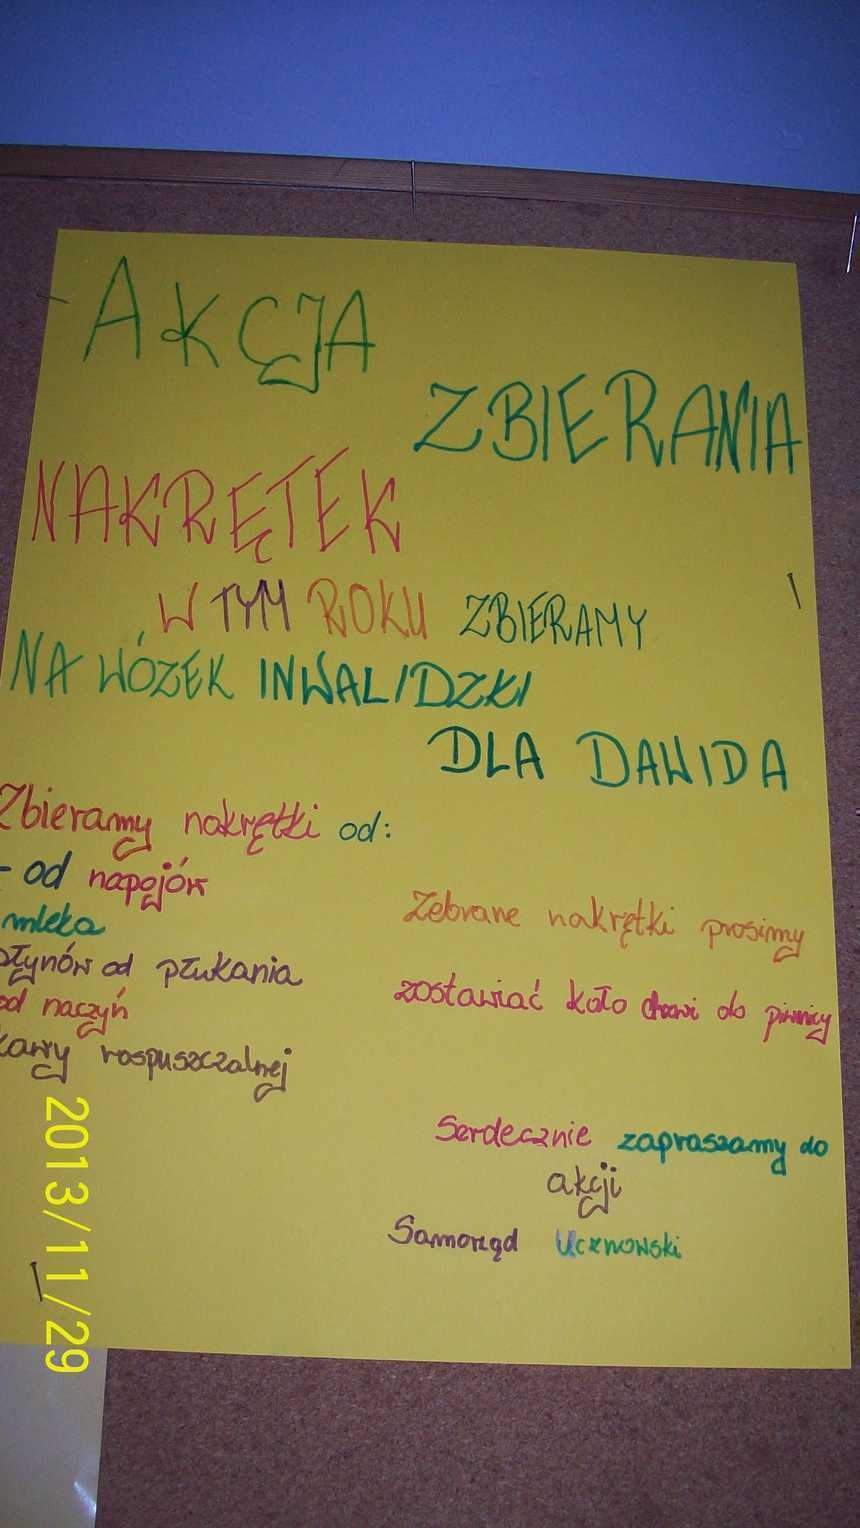 AKCJA
ZBIERANIA
NAKRĘTEK
W TYM ROKU ZBIERAMY
NA WÓZEK INWALIDZKI
DLA DAWIDA
Zbieramy nakrętki od:
- od napojów
mleka
płynów od płukania
od naczyń
kawy rospuszczalnej
Zebrane nakrętki prosimy
zostawiać koło drzwi do piwnicy
Serdecznie zapraszamy do
akcji
Samorząd Ucznowski
2013/11/29